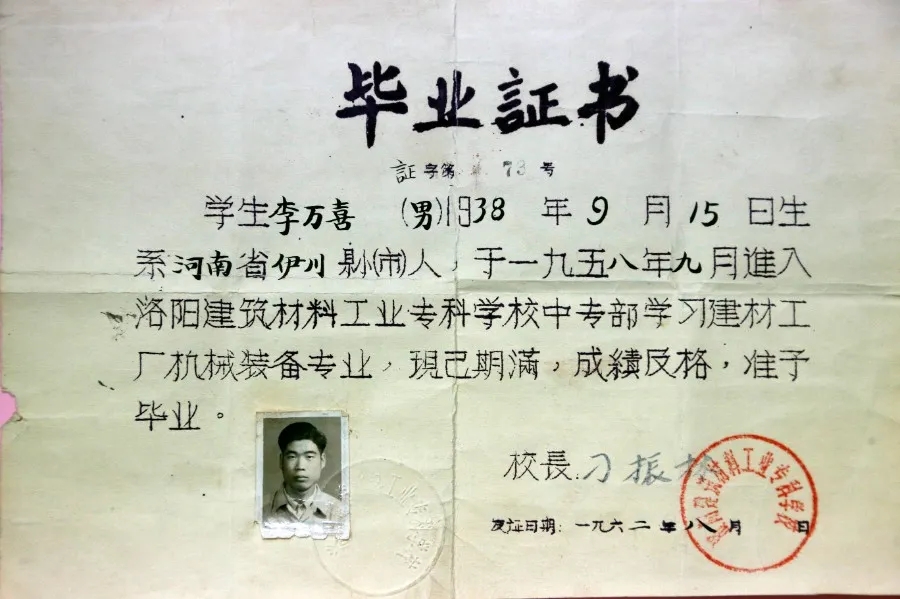 毕业証书
証字第 73 号
学生李万喜 (男)1938 年 9 月 15 日生
系河南省伊川縣(市)人，于一九五八年九月進入
洛阳建筑材料工业专科学校中专部学习建材工
厂机械装备专业，現已期滿，成績及格，准予
毕业。
校長 刁振
发证日期：一九六二年 八月 日
建筑材料工业专科学校